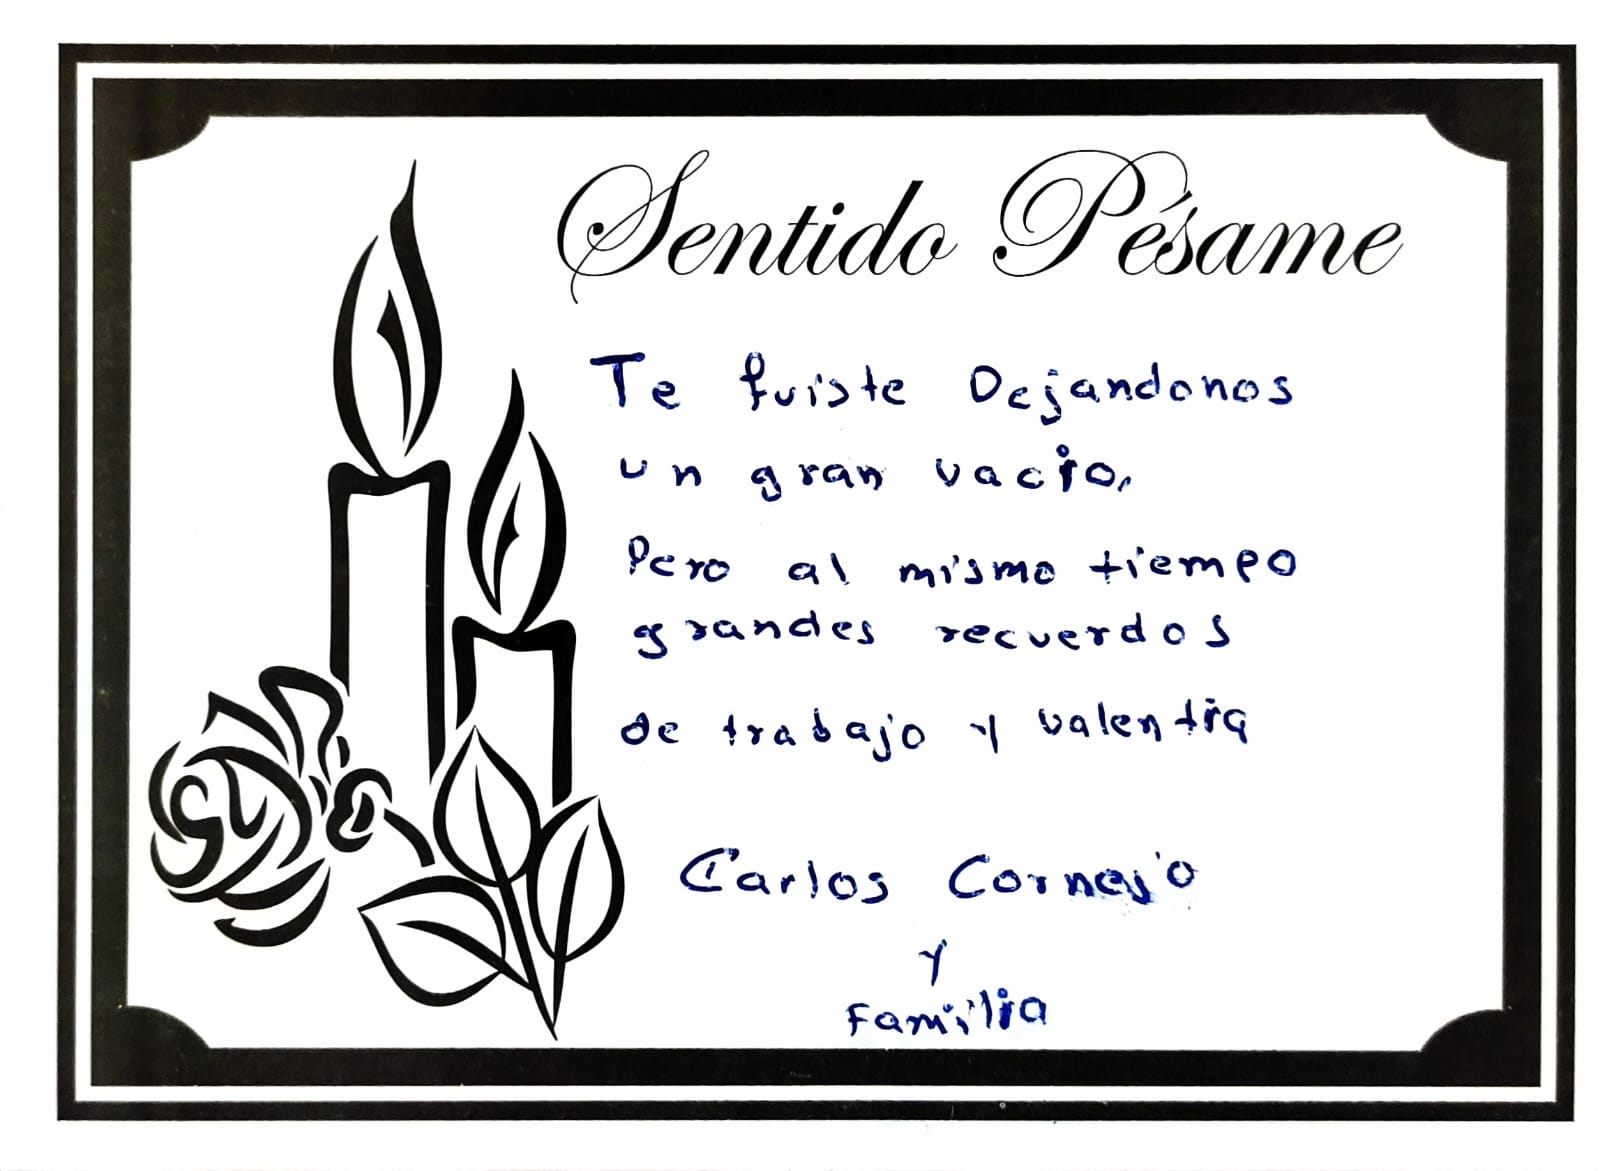 Sentido Pésame
Te fuiste Dejandonos
un gran vacio,
Pero al mismo tiempo
grandes recuerdos
de trabajo y valentia
Carlos Cornejo
y
Familia